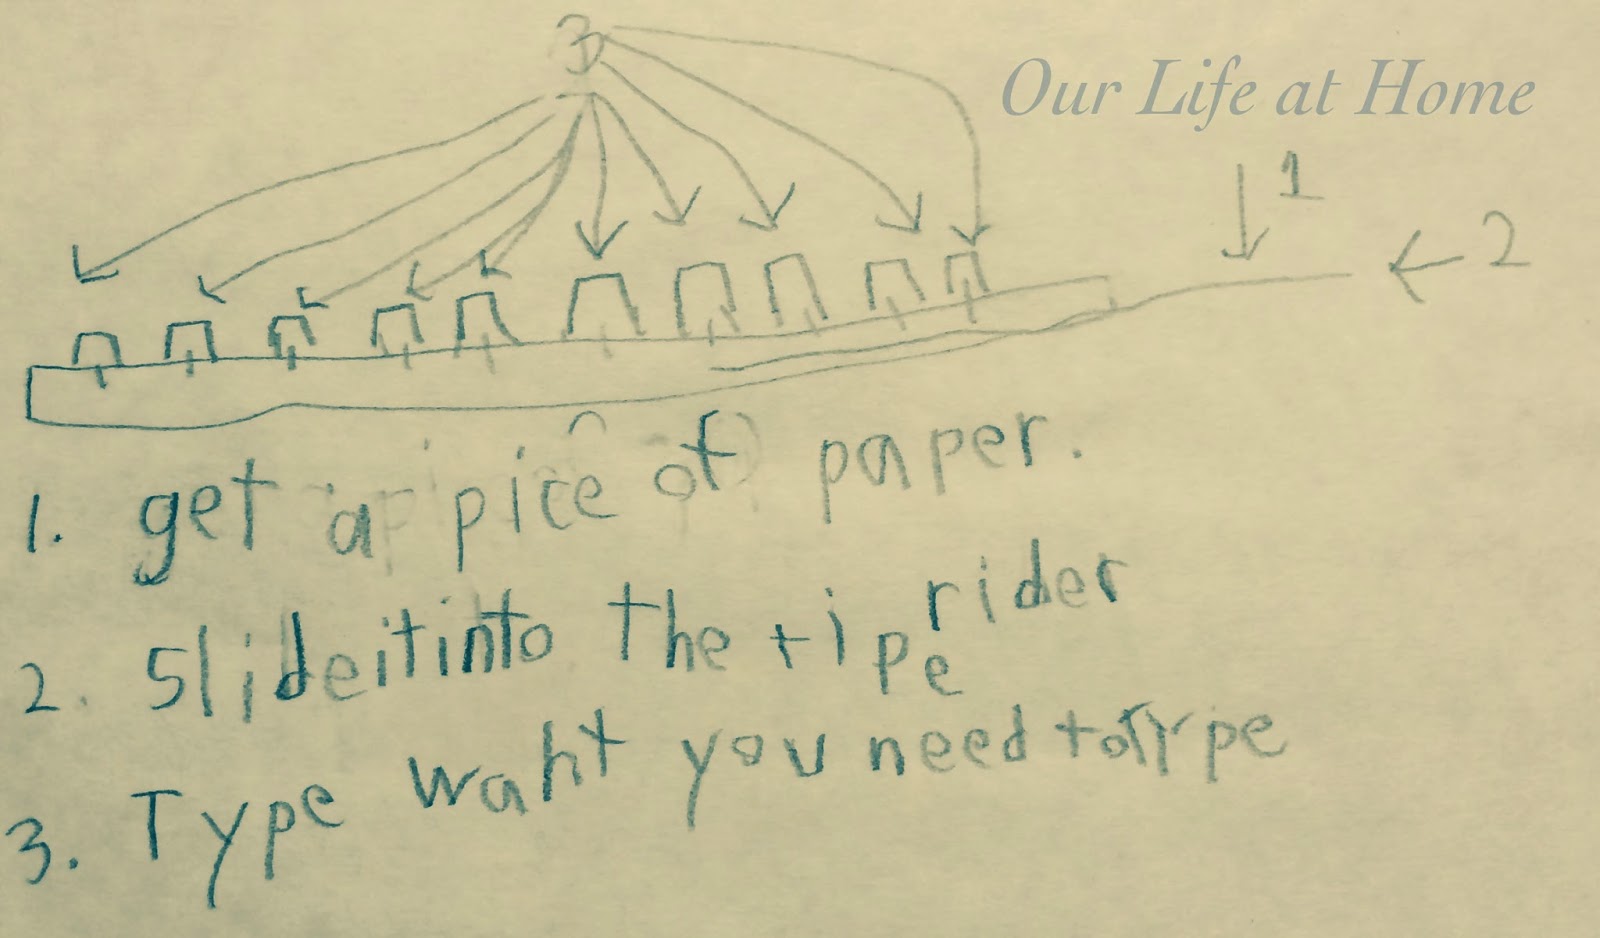 3
Our Life at Home
1
2
1. get a pice of paper.
2. Slide it into the tipe rider
3. Type waht you need to type